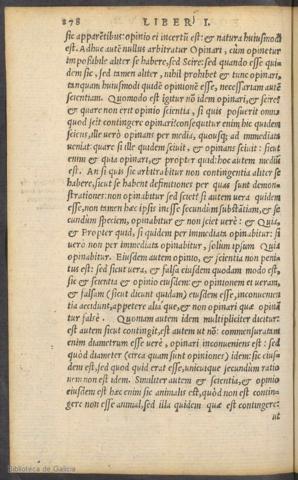 278 LIBER I.
sic apparẽtibus: opinio ei incertũ est: & natura huiusmodi
est. Adhuc autẽ nullus arbitratur Opinari, cũm opinetur
impossibile aliter se habere, sed Scire: sed quando esse qui
dem sic, sed tamen aliter, nihil prohibet & tunc opinari,
tanquam huiusmodi quidẽ opinionẽ esse, necessariam autẽ
scientiam. Quomodo est igitur nõ idem opinari, & scire?
& quare non erit opinio scientia, si quis posuerit omne
quod scit contingere opinari? consequitur enim hic quidem
sciens, ille verò opinans per media, quousq; ad immediata
veniat: quare si ille quidem sciuit, & opinans sciuit: sicut
enim & quia opinari, & propter quid: hoc autem mediũ
est. An si quis sic arbitrabitur non contingentia aliter se
habere, sicut se habent definitiones per quas sunt demon-
strationes: non opinabitur sed sciet? si autem vera quidem
esse, non tamen hæc ipsis inesse secundũm substãtiam, & se
cundũm speciem, opinabitur & non sciet verè: & Quia,
& Propter quid, si quidem per immediata opinabitur: si
verò non per immediata opinabitur, solum ipsum Quia
opinabitur. Eiusdem autem opinio, & scientia non peni-
tus est: sed sicut vera, & falsa eiusdem quodam modo est,
sic & scientia & opinio eiusdem: & opinionem ei veram,
& falsam (sicut dicunt quidam) eiusdem esse, inconuenien
tia accidunt, appetere alia que, & non opinari quæ opina
tur falsè. Quoniam autem idem multipliciter dicitur:
est autem sicut contingit, est autem ut nõ: commensuratam
enim diametrum esse verè, opinari inconueniens est: sed
quòd diameter (circa quam sunt opiniones) idem: sic eius-
dem est, sed quod quid erat esse, unicuique secundũm ratio
nem non est idem. Similiter autem & scientia, & opinio
eiusdem est hæc enim sic animalis est, quòd non est contin-
gere non esse animal, sed illa quidem quæ est contingere:
ut
Biblioteca de Galicia